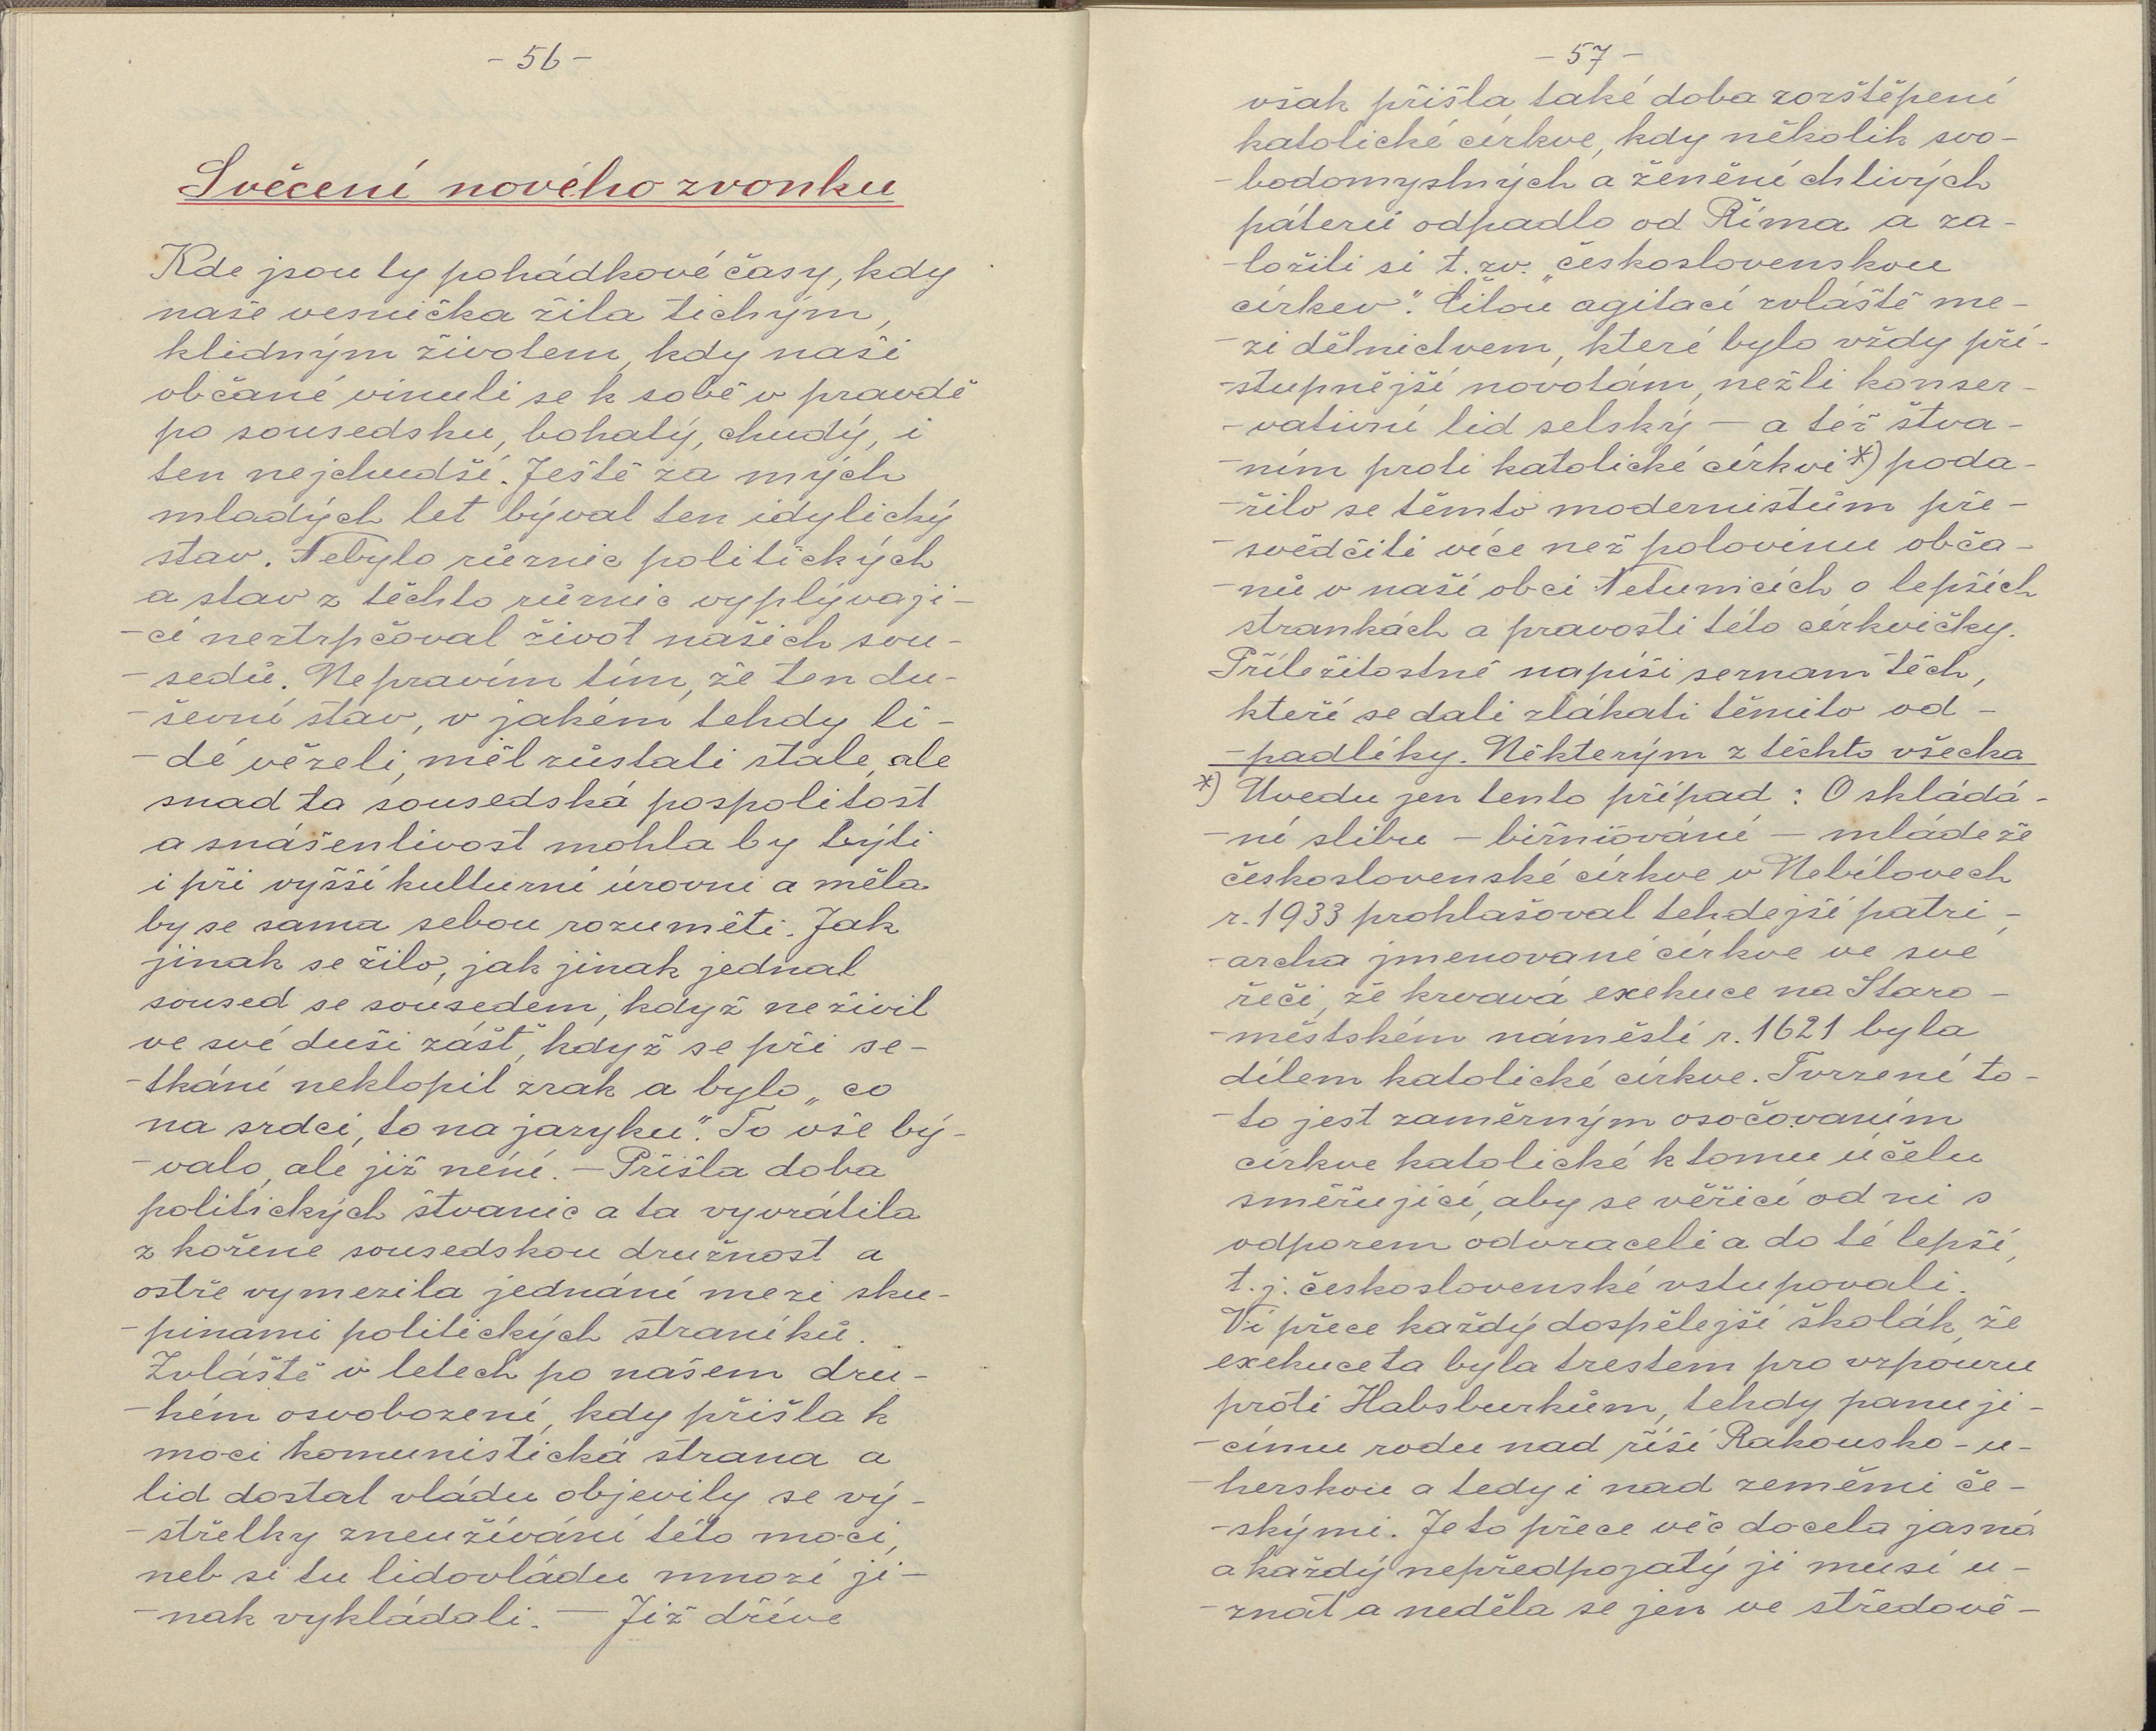 - 56 -
Svěcení nového zvonku
Kde jsou ty pohádkové časy, kdy
naše vesnička žila tichým,
klidným životem, kdy naši
občané vinuli se k sobě v pravdě
po sousedsku, bohatý, chudý, i
ten nejchudší. Ještě za mých
mladých let býval ten idylický
stav. Nebylo různic politických
a stav z těchto různic vyplývají-
-cí neztrpčoval život našich sou-
-sedů. Nepravím tím, že ten du-
-ševní stav, v jakém tehdy li-
-dé vězeli, měl zůstati stále, ale
snad ta sousedská pospolitost
a snášenlivost mohla by býti
i při vyšší kulturní úrovni a měla
by se sama sebou rozuměti. Jak
jinak se žilo, jak jinak jednal
soused se sousedem, když neživil
ve své duši zášť, když se při se-
-tkání neklopil zrak a bylo „co
na srdci, to na jazyku“. To vše bý-
-valo, ale již není. — Přišla doba
politických štvanic a ta vyvrátila
z kořene sousedskou družnost a
ostře vymezila jednání mezi sku-
-pinami politických straníků.
Zvláště v letech po našem dru-
-hém osvobození, kdy přišla k
moci komunistická strana a
lid dostal vládu objevily se vý-
-střelky zneužívání této moci,
neb si tu lidovládu mnozí ji-
-nak vykládali. — Již dříve
- 57 -
však přišla také doba rozštěpení
katolické církve, kdy několik svo-
-bodomyslných a ženění chtivých
páterů odpadlo od Říma a za-
-ložili si t. zv. „československou
církev“. Čilou agitací zvláště me-
-zi dělnictvem, které bylo vždy pří-
-stupnější novotám, nežli konser-
-vativní lid selský — a též štva-
-ním proti katolické církvi *) poda-
-řilo se těmto modernistům pře-
-svědčiti více než polovinu obča-
-nů v naší obci Netunicích o lepších
stránkách a pravosti této církvičky.
Příležitostně napíši seznam těch,
kteří se dali zlákati těmito od-
-padlíky. Některým z těchto všecka
*) Uvedu jen tento případ: O skládá-
-ní slibu — biřmování — mládeže
československé církve v Nebílovech
r. 1933 prohlašoval tehdejší patri-
-archa jmenované církve ve své
řeči, že krvavá exekuce na Staro-
-městském náměstí r. 1621 byla
dílem katolické církve. Tvrzení to-
-to jest záměrným osočovaním
církve katolické k tomu účelu
směřující, aby se věřící od ní s
odporem odvraceli a do té lepší,
t. j. československé vstupovali.
Ví přece každý dospělejší školák, že
exekuce ta byla trestem pro vzpouru
proti Habsburkům, tehdy panují-
-címu rodu nad říší Rakousko-u-
-herskou a tedy i nad zeměmi če-
-skými. Je to přece věc docela jasná
a každý nepředpojatý ji musí u-
-znat a neděla se jen ve středově-